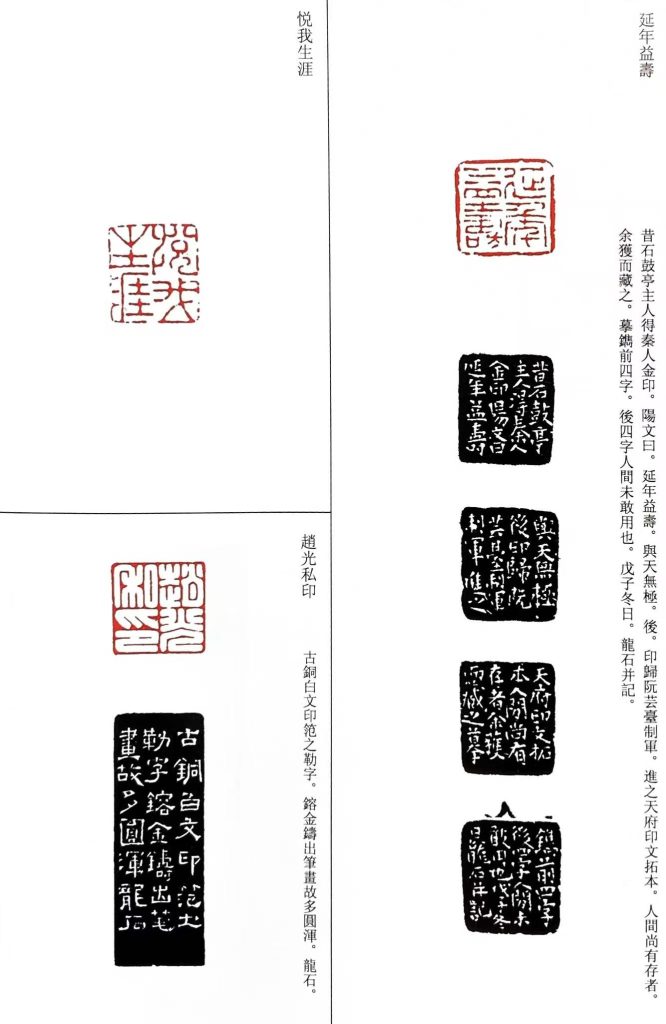 延年益壽
昔石鼓亭主人得秦人金印。陽文曰。延年益壽。與天無極。後。印歸阮芸臺制軍。進之天府印文拓本。人間尚有存者。
余獲而藏之。摹鐫前四字。後四字人間未敢用也。戊子冬日。龍石并記。
延年益壽
昔石鼓亭
主人得秦人
金印陽文曰
延年益壽
與天無極
後印歸阮
制軍進之
天府印文拓
本人間尚有
存者余獲
而藏之摹
鐫前四字
後四字人間未
敢用也戊子冬
日龍石并記
悦我生涯
悦我生涯
趙光私印
古銅白文印笵之勒字。鎔金鑄出筆畫故多圓渾。龍石。
趙光私印
古銅白文印笵土
勒字鎔金鑄出笔
畫故多圓渾龍石